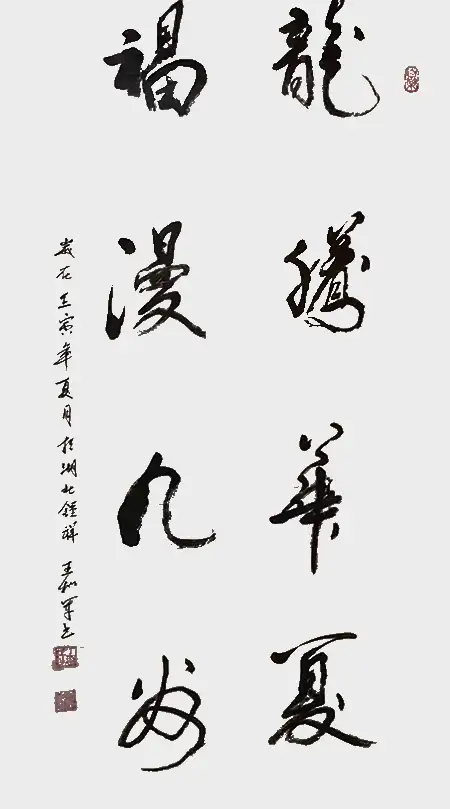 龍騰華夏
福漫九州
歲在壬寅年夏月於湖北鍾祥 王